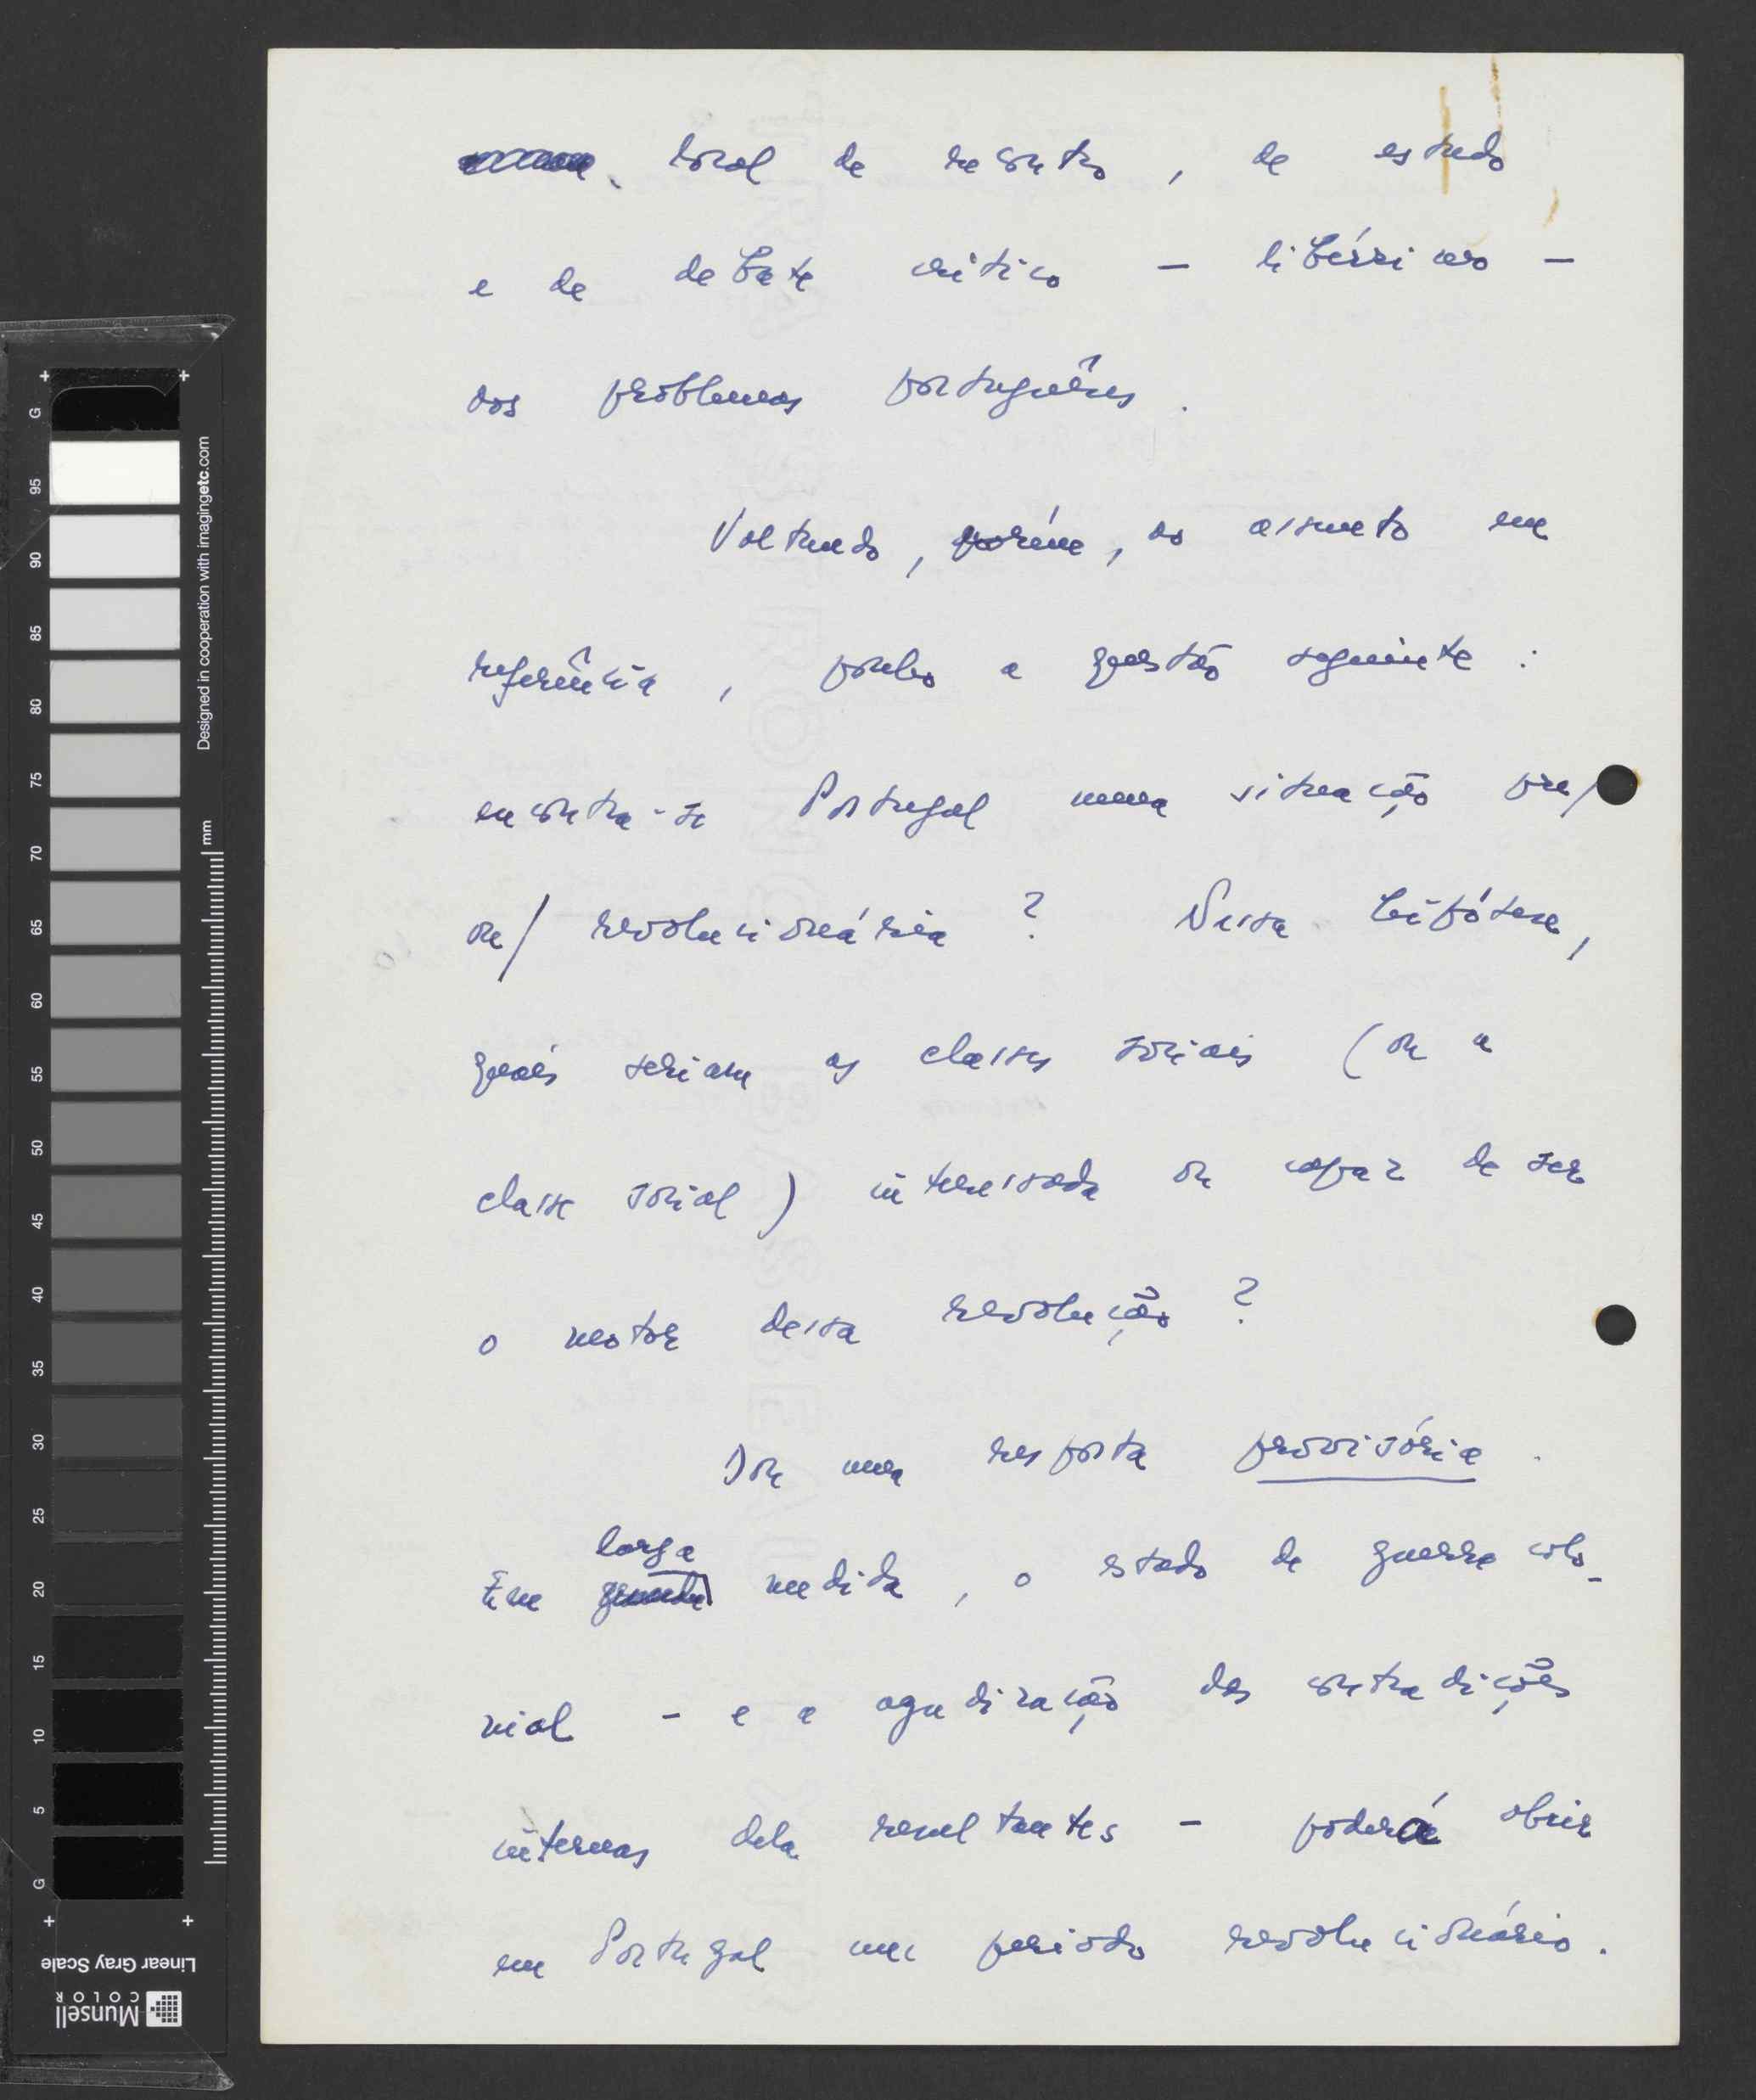 local de encontro, de estudo
e de debate crítico – libérrimo –
dos problemas portuguêses.
Voltando, porém, ao assunto em
referência, ponho a questão seguinte :
encontra-se Portugal numa situação pre/
ou/ revolucionária ? Nessa hipótese,
quais seriam as classes sociais (ou a
classe social) interessada ou capaz de ser
o motor dessa revolução ?
Dou uma resposta provisória.
larga
Em grande medida, o estado de guerra colo-
nial – e a agudização das contradições
internas dela resultantes – poderá abrir
em Portugal um periodo revolucionário.
G
95
90
85
80
75
70
65
60
55
50
45
40
35
30
25
20
15
10
5
G
Designed in cooperation with imagingetc.com
mm
Linear Gray Scale
Munsell
COLOR